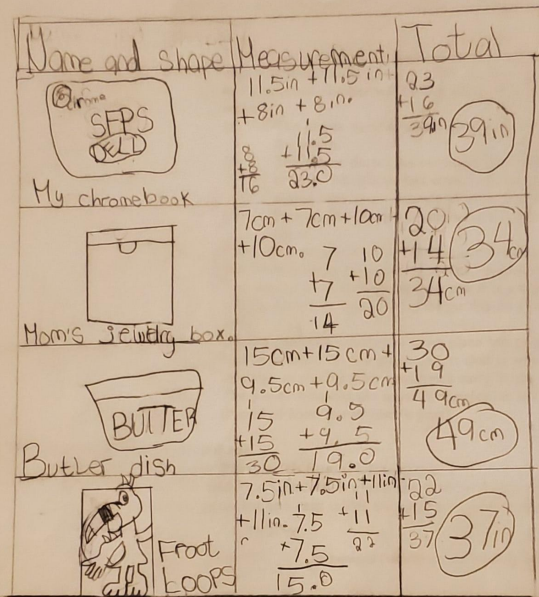 Name and shape Measurement Total
SFPS
DELL
My chromebook
11.5in + 11.5in
+8in + 8in.
8
+8
16
1
11.5
+11.5
23.0
23
+16
39in
39in
Mom's jewelry box.
7cm + 7cm + 10cm
+10cm.
7
+7
14
10
+10
20
20
+14
34cm
34cm
BUTTER
Butter dish
15cm + 15cm +
9.5cm + 9.5cm
1
15
+15
30
1
9.5
+9.5
19.0
30
+19
49cm
49cm
Froot
LOOPS
7.5in + 7.5in + 11in
+11in.
1
7.5
+7.5
15.0
11
+11
22
22
+15
37
37in